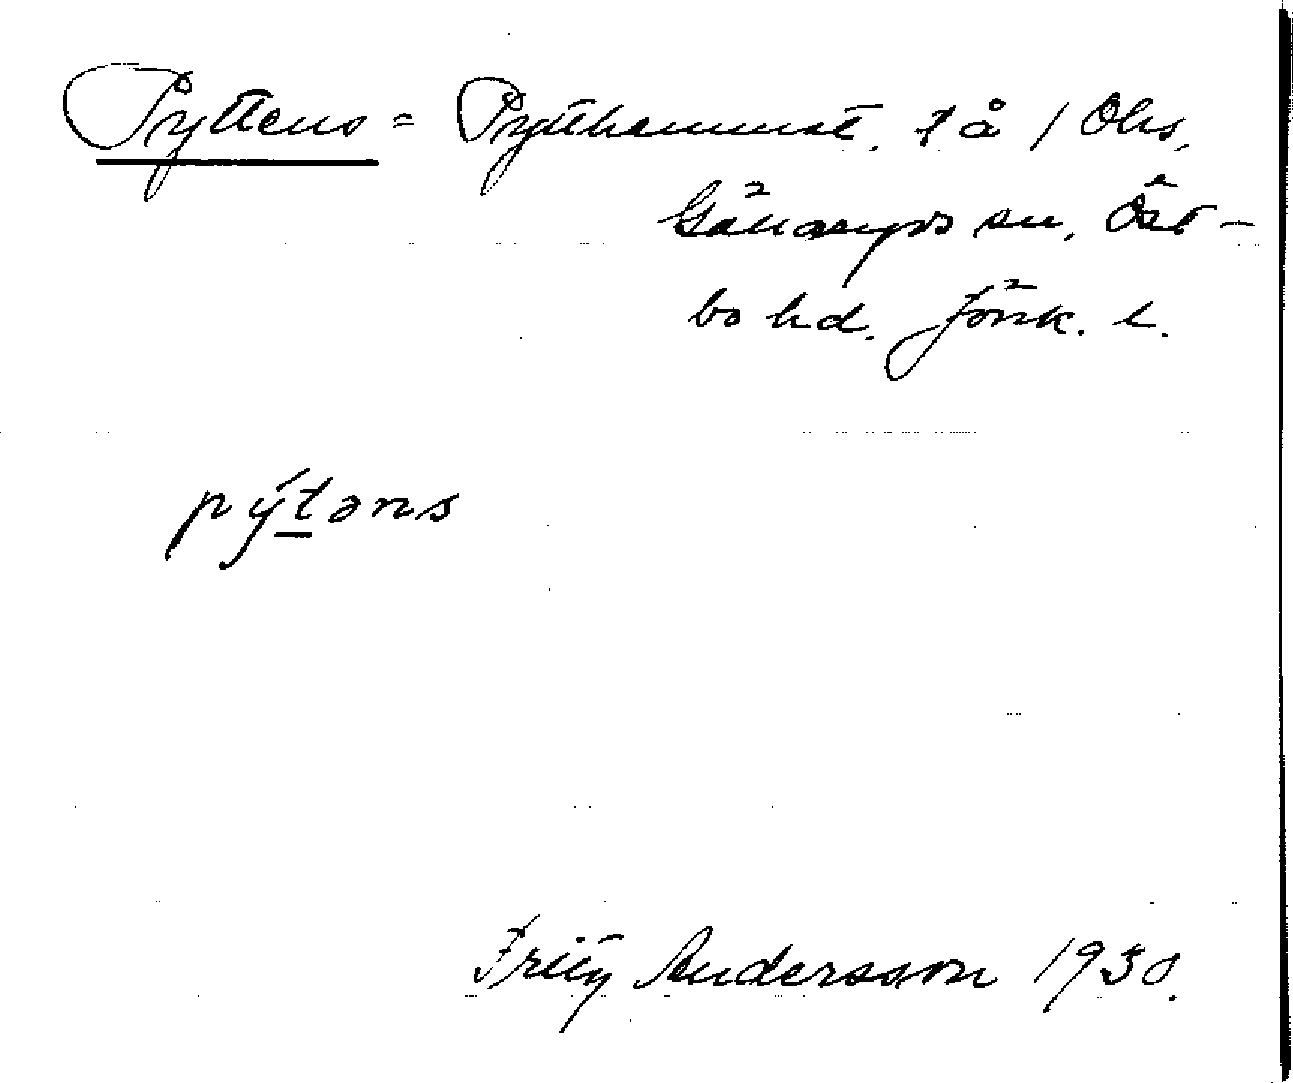 Pyttens = Pytthemmet. t å / Ohs,
Gällaryds sn, Öst-
bo hd. Jönk. l.
pýtəns
Fritz Andersson 1930.